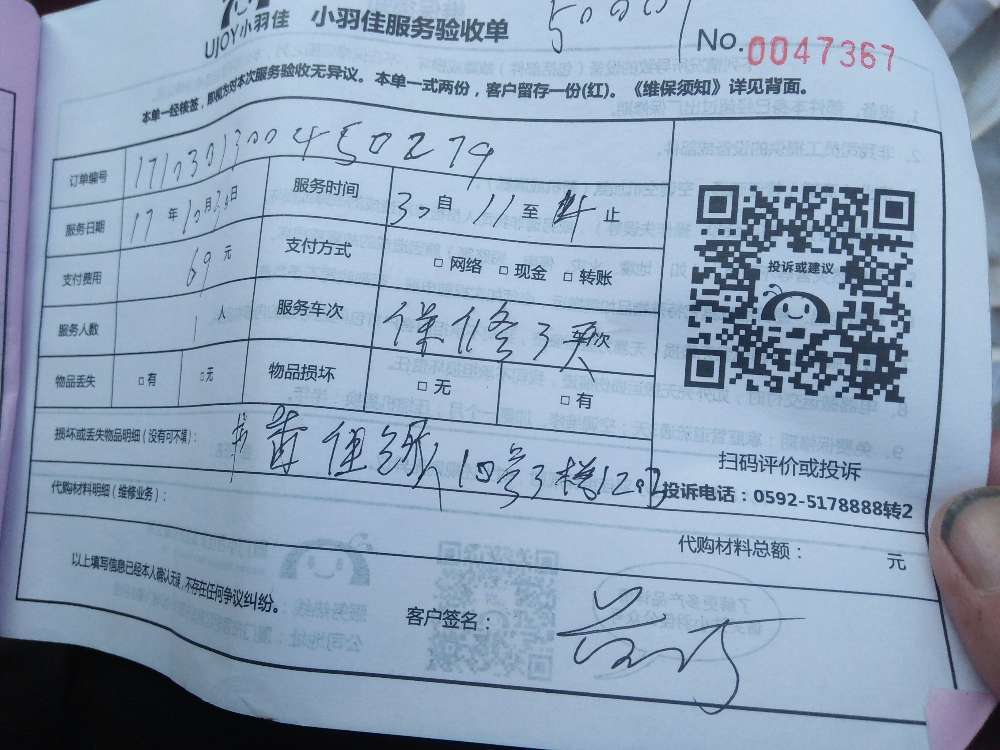 UJOY小羽佳 小羽佳服务验收单 50001 No.0047367
本单一经核签，即视为对本次服务验收无异议。本单一式两份，客户留存一份(红)。《维保须知》详见背面。
订单编号 171030130045 0279
服务日期 17年10月30日 服务时间 30自11至 止
支付费用 69元 支付方式 □网络 □现金 □转账
服务人数 1人 服务车次 保修3天 次
物品丢失 □有 □无 物品损坏 □无 □有
投诉或建议
扫码评价或投诉
投诉电话：0592-5178888转2
损坏或丢失物品明细（没有可不填）： 10号3楼1203
代购材料明细（维修业务）：
代购材料总额： 元
以上填写信息已经本人确认无误，不存在任何争议纠纷。
客户签名：